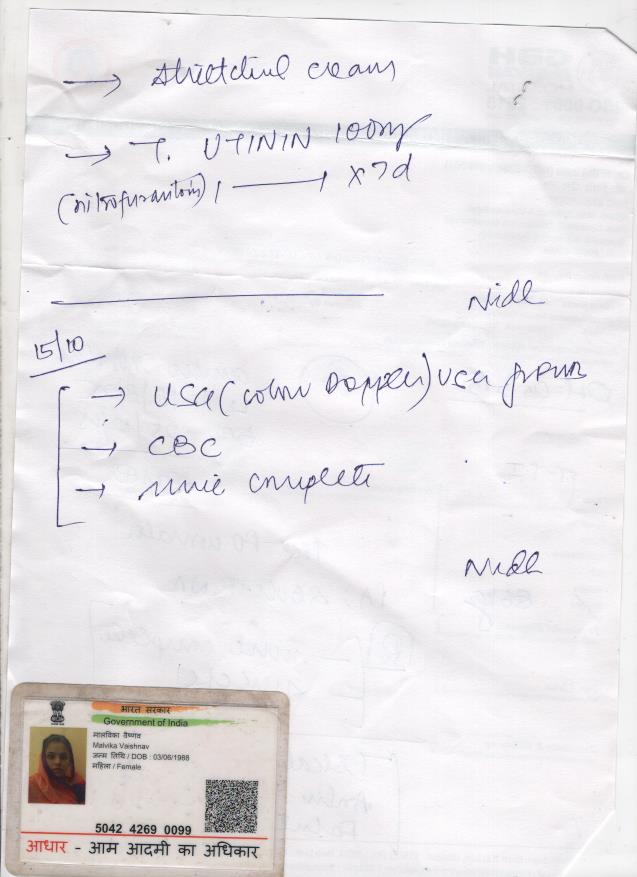 → cream
→ T. UTININ 100mg
(nitrofurantoin) 1 —— 1 x 7d
Nidhi
15/10
→ USG (colour Doppler)
→ CBC
→ urine complete
Nidhi
भारत सरकार
Government of India
मालविका वैष्णव
Malvika Vaishnav
जन्म तिथि / DOB : 03/06/1988
महिला / Female
5042 4269 0099
आधार - आम आदमी का अधिकार